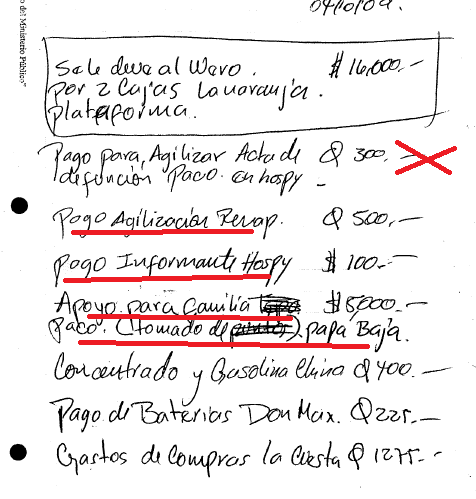 o del Ministerio Público"
Se le deve al Wero. $ 16,000.-
por 2 Cajas la naranja.
plataforma.
Pago para Agilizar Acta de Q 300.-
defunción Paco. en hospy -
Pago Agilización Renap. Q 500.-
Pago Informante Hospy $ 100.-
Apoyo para familia $ 5,000.-
Paco. (tomado de ) papa Baja.
Concentrado y Gasolina China Q 400.-
Pago de Baterias Don Max. Q 225.-
Gastos de Compras la Cuesta Q 1275.-